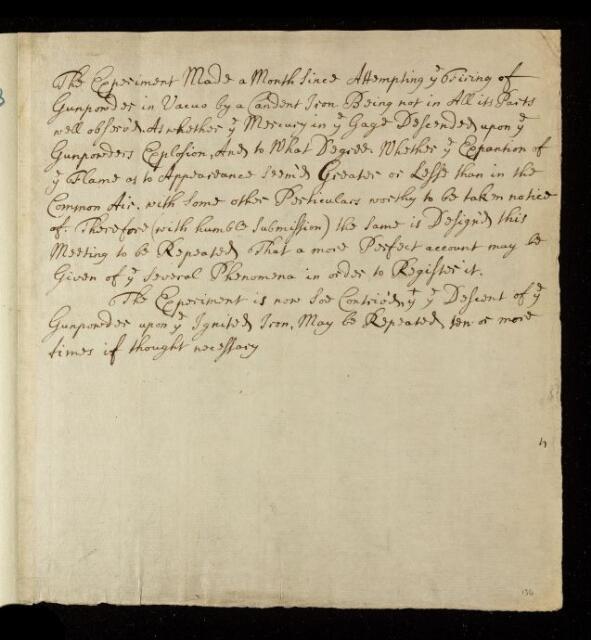 The Experiment Made a Month Since Attempting yͤ Fireing of
Gunpowder in Vacuo by a Candent Iron Being not in All its Parts
well observ'd, As whether yͤ Mercury in yͤ Gage Descended upon yͤ
Gunpowders Explosion, And to What Degree. Whether yͤ Expantion of
yͤ Flame as to Appeareance seem'd Greater or Lesse than in the
Common Air. with some other Perticulars worthy to be taken notice
of. Therefore (with humble submission) the same is Design'd this
Meeting to be Repeated, That a more Perfect account may be
Given of yͤ several Phenomena in order to Register it.
The Experiment is now soe Contriv'd, yͭ yͤ Descent of yͤ
Gunpowder upon yͤ Ignited Iron, May be Repeated ten or more
times if thought necessary